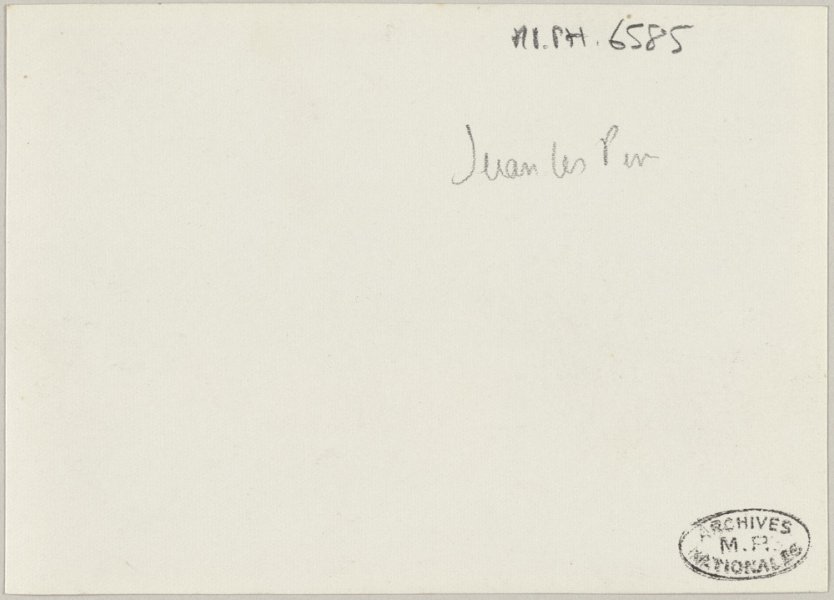 AI.PH. 6585
Juan les Pin
ARCHIVES
M.P.
NATIONALES